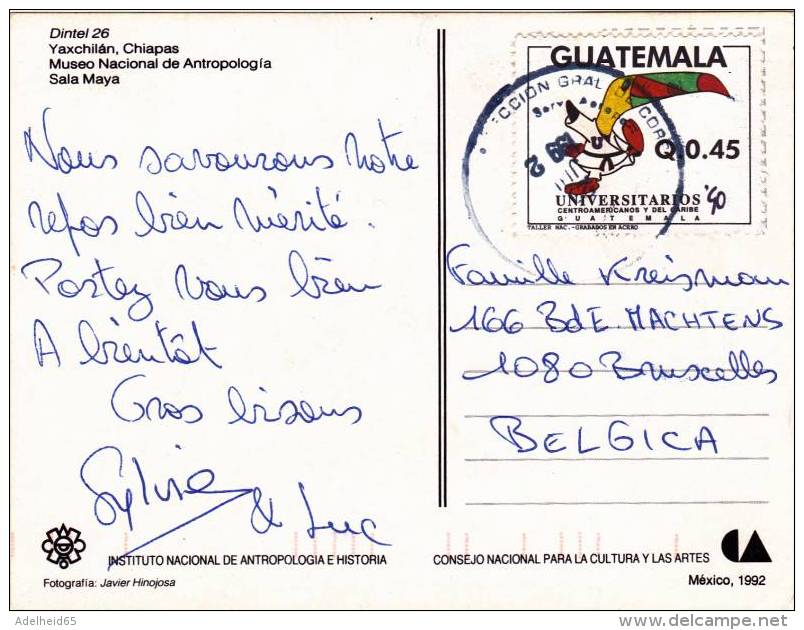 Dintel 26
Yaxchilán, Chiapas
Museo Nacional de Antropología
Sala Maya
Nous savourons notre
repos bien mérité.
Portez vous bien
A bientôt
Gros bisous
Sylvie
& Luc
GUATEMALA
Q 0.45
UNIVERSITARIOS '90
CENTROAMERICANOS Y DEL CARIBE
GUATEMALA
TALLER NAC.-GRABADOS EN ACERO
CCION GRAL
CORR
Famille Kreisman
166 Bd E. MACHTENS
1080 Bruxelles
BELGICA
INSTITUTO NACIONAL DE ANTROPOLOGIA E HISTORIA
CONSEJO NACIONAL PARA LA CULTURA Y LAS ARTES
Fotografía: Javier Hinojosa
México, 1992
Adelheid65
delcampe.net